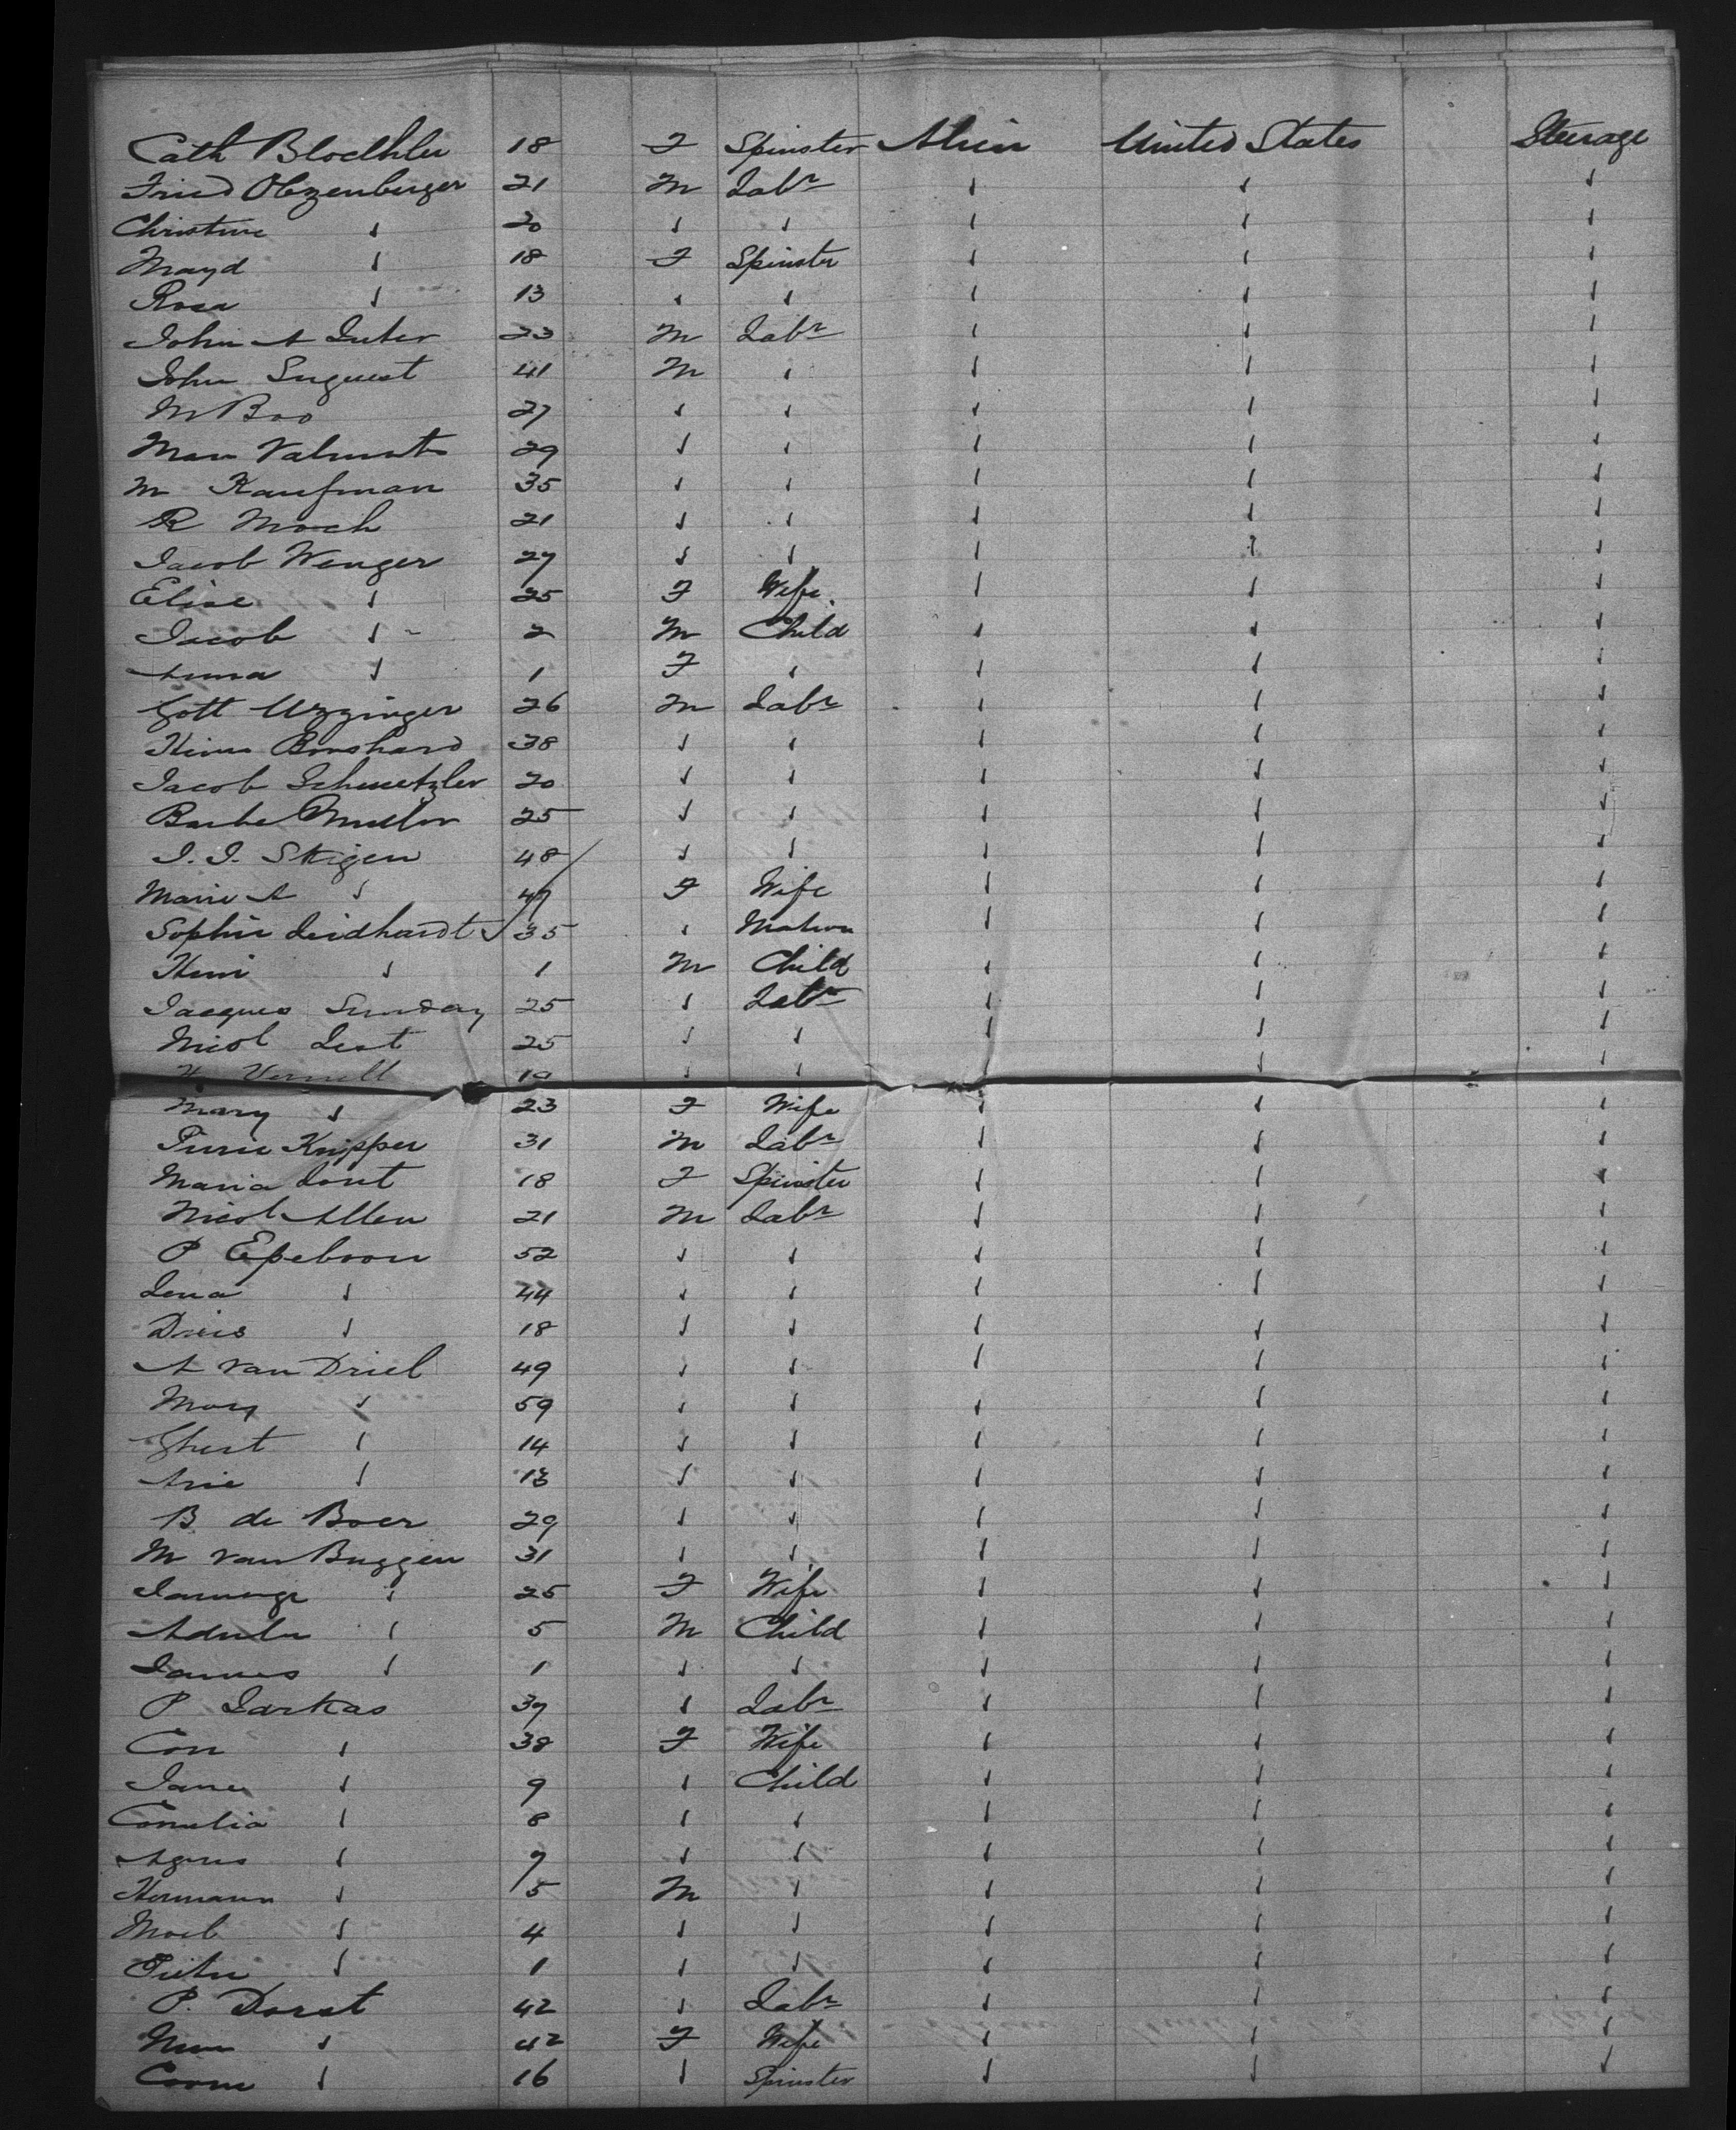 Cath Bloechler 18 F Spinster Alien United States Steerage
Fried Obzenberger 21 M Labr
Christine 20
Magd 18 F Spinster
Rosa 13
John A Suter 23 M Labr
John Suguest 41 M
M Boo 27
Man 29
M Kaufman 35
R Moch 21
Jacob Wenger 27
Elise 25 F Wife
Jacob 2 M Child
Anna 1 F
Gott Utzinger 26 M Labr
Bonshard 38
Jacob Schmetzler 20
Barbe Muller 25
J. J. Steigen 48
Marie A 49 F Wife
Sophie Leidhardt 35 Matron
Henri 1 M Child
Jacques Sunday 25 Labr
Nicol Lest 25
H Vernell 19
Mary 23 F Wife
Pierre Knipper 31 M Labr
Maria Lout 18 F Spinster
Nicol Allen 21 M Labr
P Epeboon 52
Lena 44
Dries 18
A van Driel 49
Mary 59
Ghert 14
Arie 13
B de Boer 29
M van Buggen 31
25 F Wife
5 M Child
Jannes 1
P Larkas 39 Labr
Con 38 F Wife
Jane 9 Child
Cornelia 8
Agnes 7
Hermann 5 M
4
Pieter 1
P. Dorst 42 Labr
42 F Wife
16 Spinster